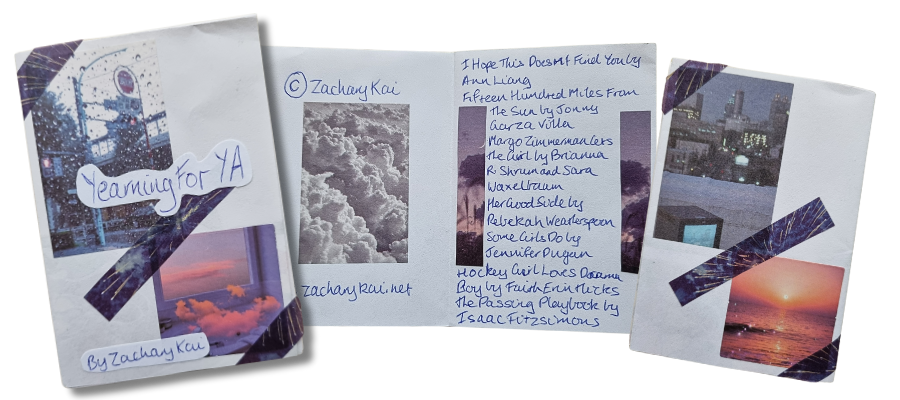 Yearning For YA
By Zachary Kai
© Zachary Kai
zacharykai.net
I Hope This Doesn't Find You by
Ann Liang
Fifteen Hundred Miles From
The Sun by Jonny
Garza Villa
Margo Zimmerman Gets
The Girl by Brianna
R. Shrum and Sara
Waxelbaum
Her Good Side by
Rebekah Weatherspoon
Some Girls Do by
Jennifer Dugan
Hockey Girl Loves Drama
Boy by Faith Erin Hicks
The Passing Playbook by
Isaac Fitzsimons